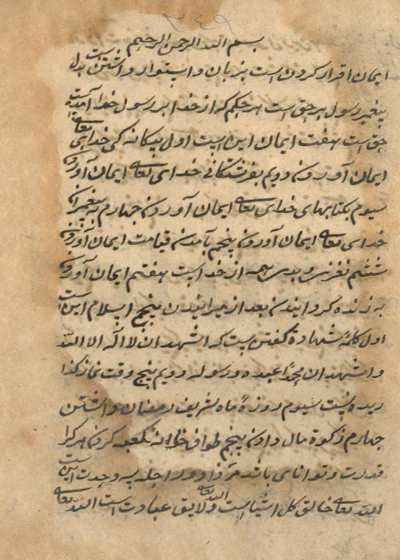 بسم الله الرحمن الرحیم
ایمان اقرار کردن است بزبان و استوار داشتن است بدل
پیغمبر رسول بر حق است هر حکم که از خدا بر رسول خدا آمدست
حق است هفت ایمان این است اول بیکانه کی خدای تعالی
ایمان آوردن دویم بفرشتکانی خدای تعالی ایمان آوردن
سیوم بکتابهای خدای تعالی ایمان آوردن چهارم به پیغمبران
خدای تعالی ایمان آوردن پنجم بآمدن قیامت ایمان آوردن
ششم نیکی و بدی همه از خداست هفتم ایمان آوردن
به زنده کردانیدن بعد از میرانیدن پنج اسلام این است
اول کلمهٔ شهادة کفتن است که اشهد ان لا اله الا الله
و اشهد ان محمدا عبده و رسوله دویم پنج وقت نماز کذا
ریدنست سیوم روزهٔ ماه شریف رمضان داشتن
چهارم زکوة مال دادن پنجم طواف خانه کعبه کردن هر کرا
قدرت و توانای باشد
الله تعالی خالق کل اشیا است و لایق عبادت است الله تعالی